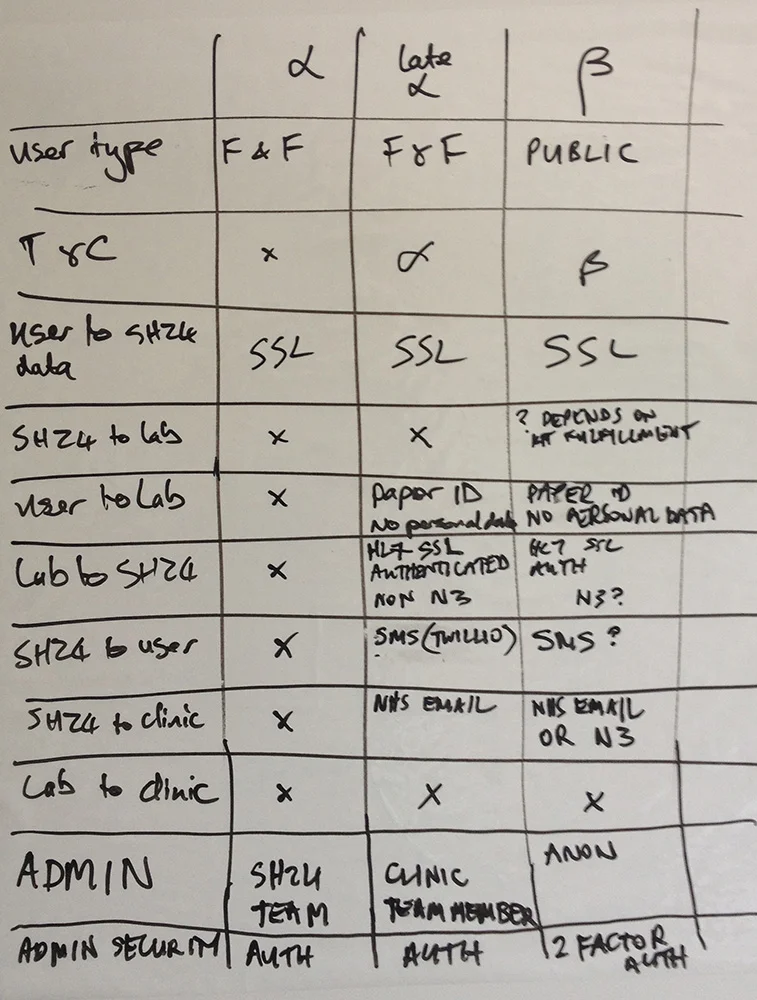 α late β
α
user type F & F F & F PUBLIC
T & C x α β
user to SH24 SSL SSL SSL
data
SH24 to lab x x ? DEPENDS ON
KT FULFILLMENT
user to Lab x paper ID PAPER ID
No personal data NO PERSONAL DATA
Lab to SH24 x HL7 SSL HL7 SSL
AUTHENTICATED AUTH
NON N3 N3?
SH24 to user x SMS (TWILLIO) SMS ?
SH24 to clinic x NHS EMAIL NHS EMAIL
OR N3
Lab to clinic x x x
ADMIN SH24 CLINIC ANON
TEAM TEAM MEMBER
ADMIN SECURITY AUTH AUTH 2 FACTOR
AUTH